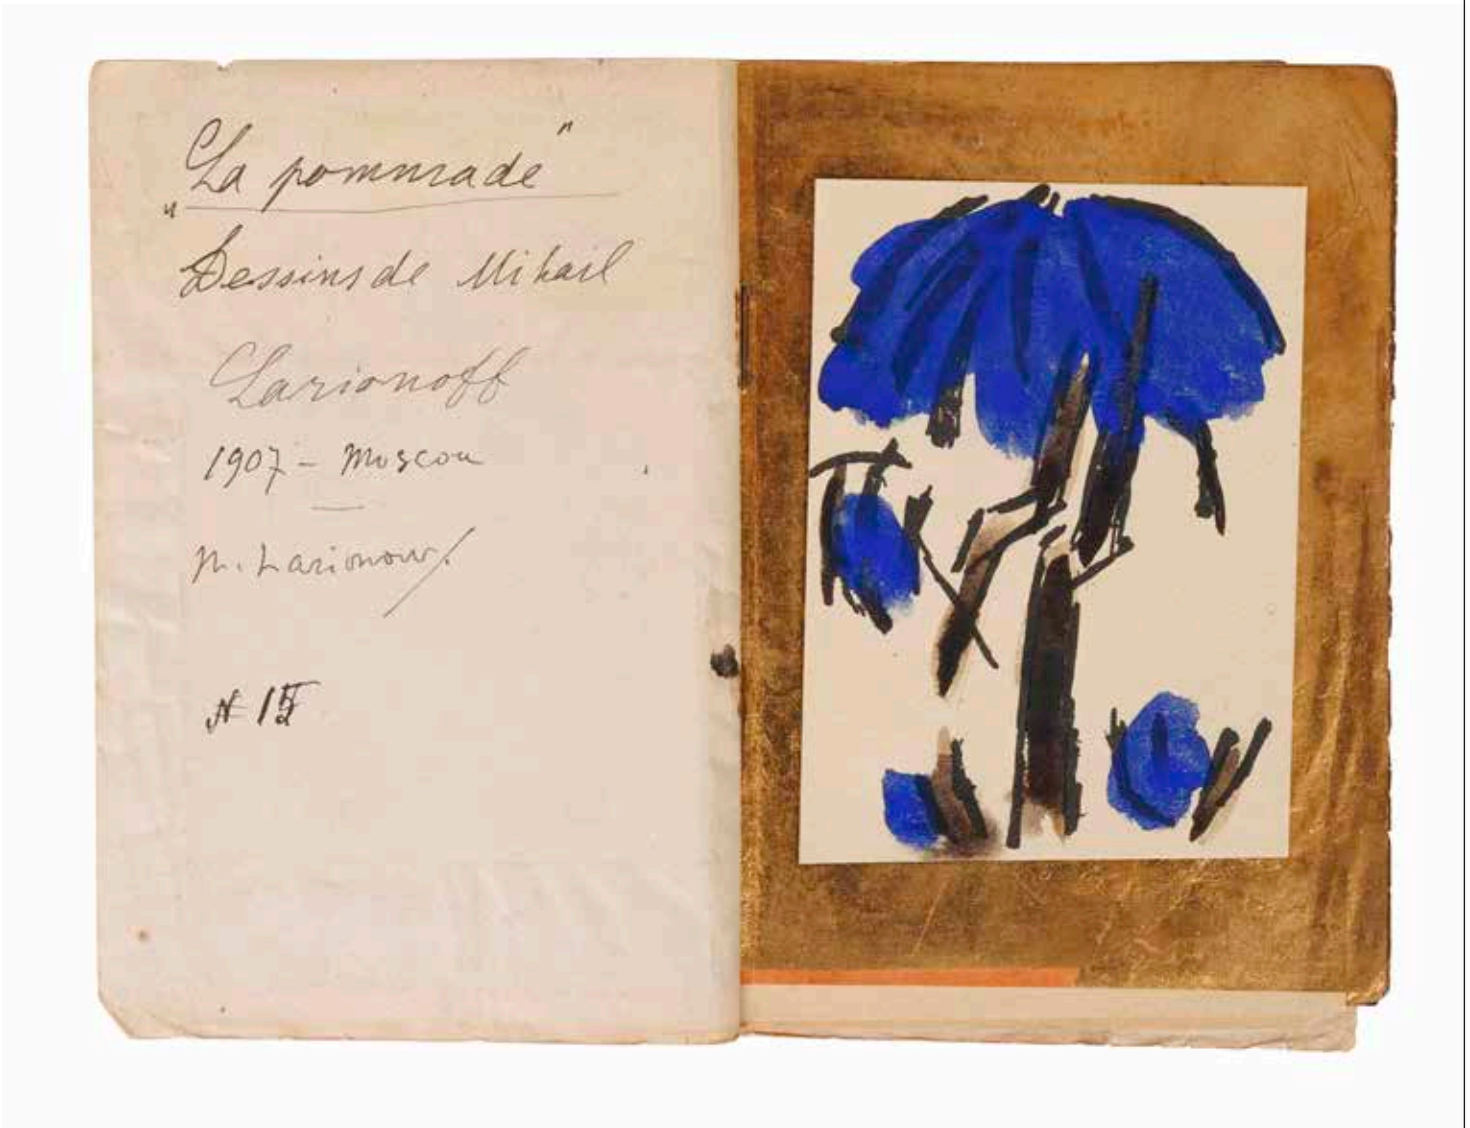 "La pommade"
Dessins de Mihail
Larionoff
1907 - Moscou
M. Larionow.
N 15